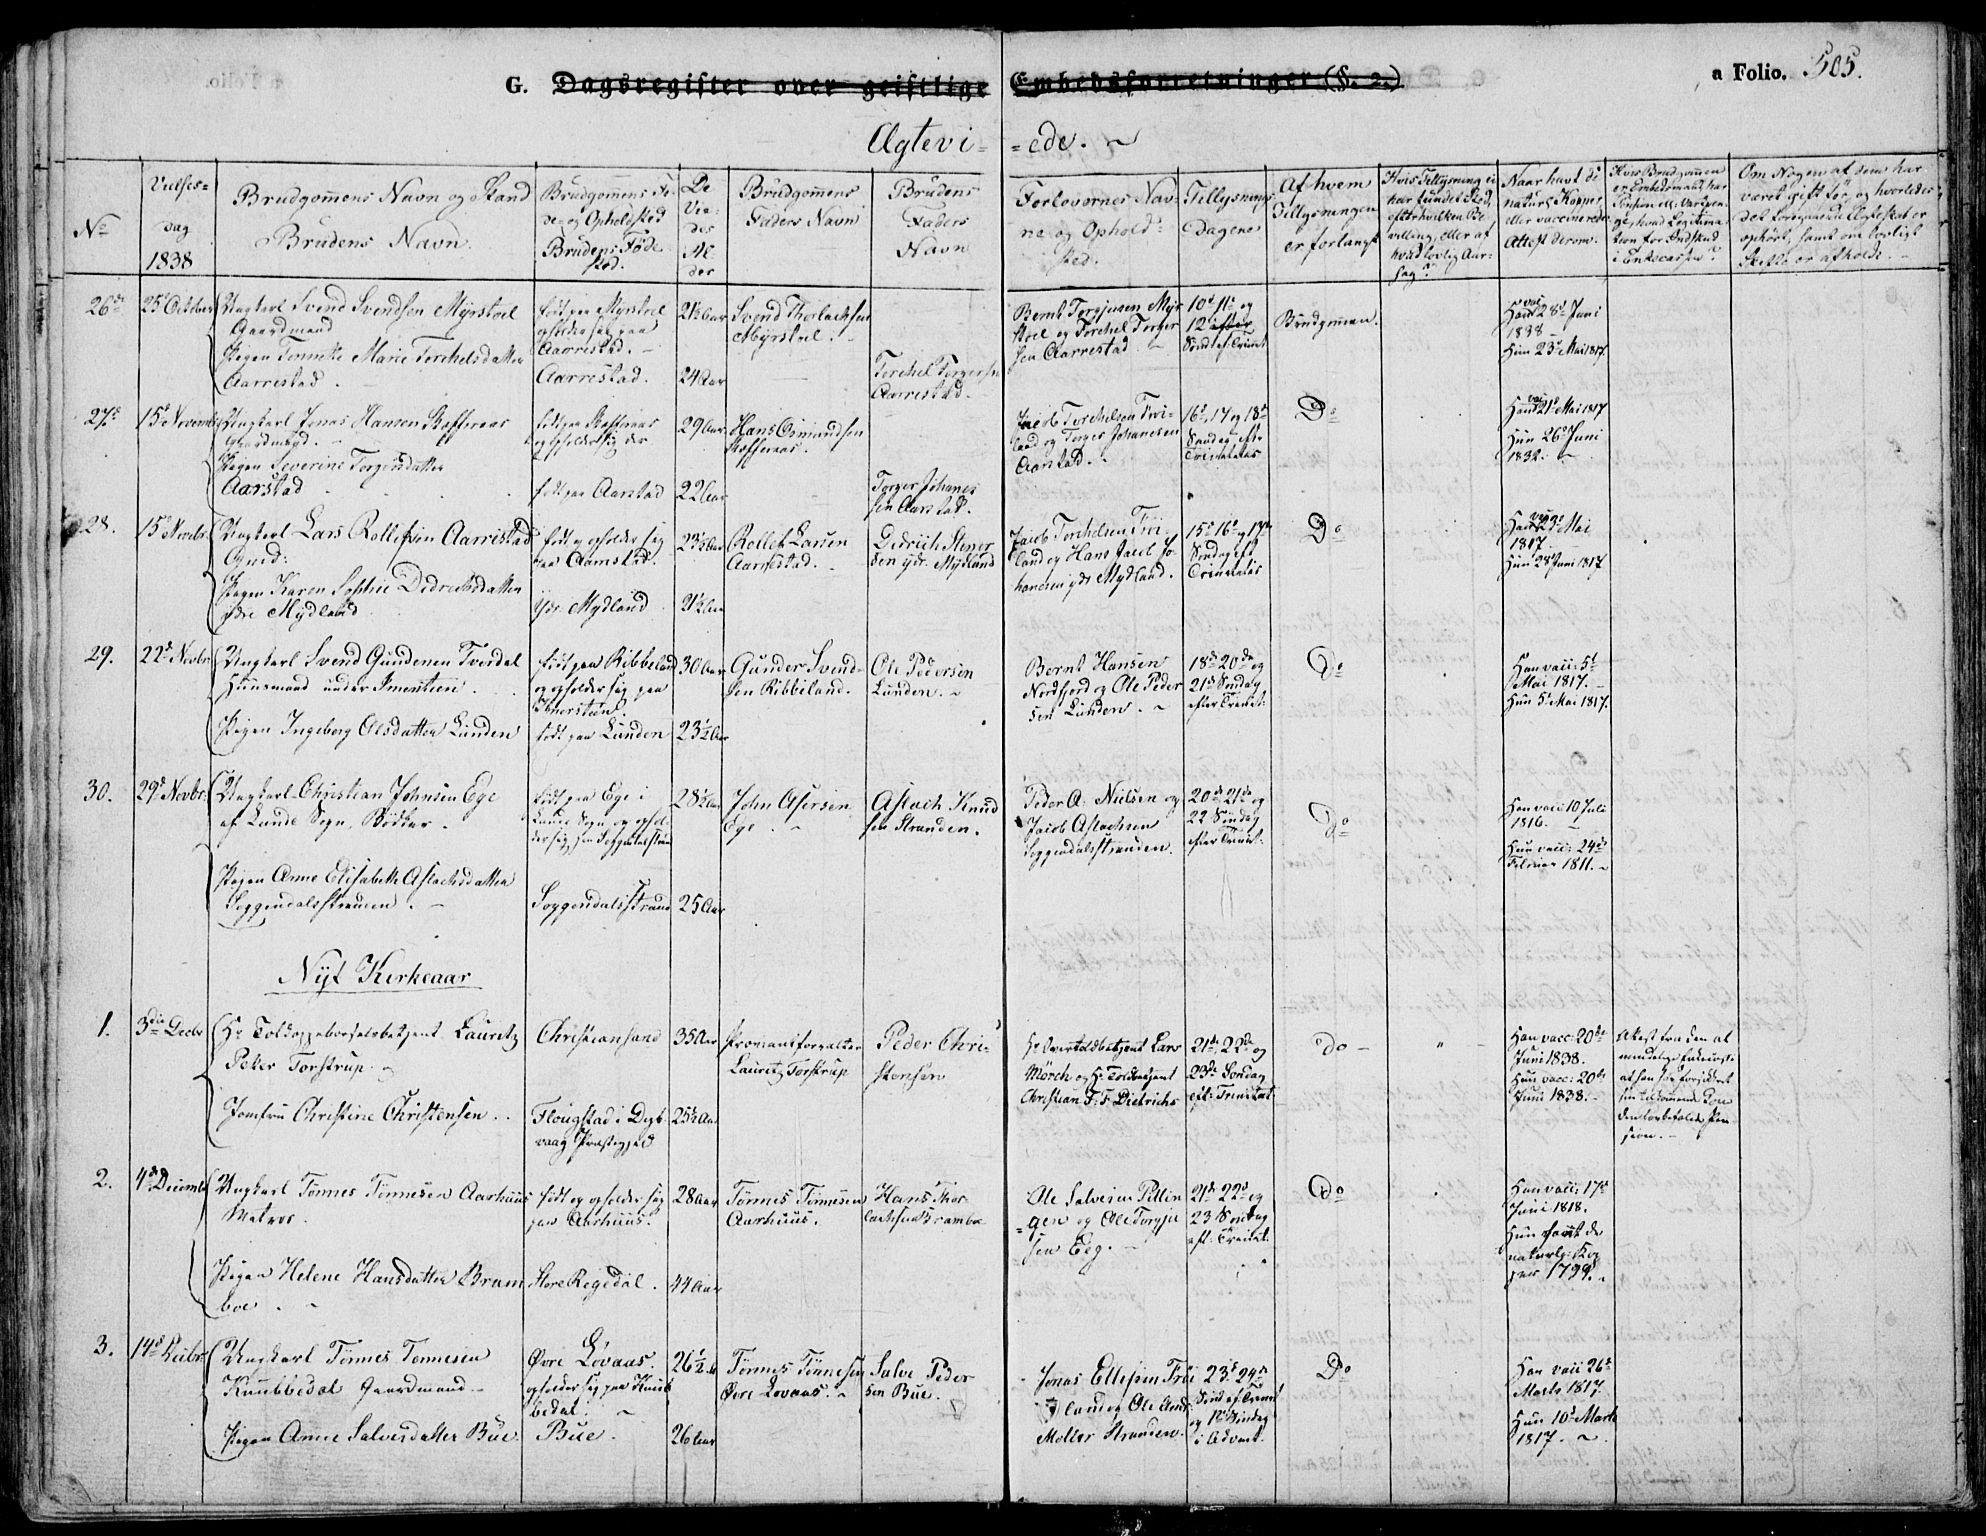 G. Dagsregister over geistlige Embedsforretninger (§. 2.)
a Folio. 505.
Ægtevi- -ede.
No
Vielses-
dag
1838
Brudgommens Navn og Stand
Brudens Navn
Brudgommens Fø-
de- og Opholdsted
Brudens Føde
sted.
De
Vie-
des
Al-
der
Brudgommens
Faders Navn
Brudens
Faders
Navn
Forlovernes Nav-
ne og Ophold-
sted.
Tillysnings
Dagene
Af hvem
Tillysningen
er forlangt
Hvis Tillysning ei
har fundet Sted,
efter hvilken Be-
villing, eller af
hvad lovlig Aar-
sag?
Naar havt de
naturl. Kopper
eller vaccinerede
Attest derom.
Om Nogen af dem har
været gift før, og hvorledes
26de
25de October
Ungkarl Svend Svendsen Myrstoel
Gaardmand
Pigen Tonnette Marie Torchelsdatter
Aarrestad.
født paa Myrstoel
opholder sig paa
Aarrestad.
Aarrestad.
21½ Aar
24 Aar
Svend Thorlachsen
Myrstoel.
Torchel Torgersen
Aarrestad.
Bernt Torgjusen Myr
stoel og Torchel Torger
sen Aarrestad
10de 11te og
12 efter
Sønd. ef. Trinit.
Brudgommen.
Han vac. 28de Juni
1838
Hun 23de Mai 1817.
27de
15de Novemb.
Ungkarl Jonas Hansen Refferaas
Pigen Severine Torgersdatter
Aarstad
og opholder sig der
født paa Aarstad
29 Aar
22 Aar
Hans Osmundsen
Refferaas.
Torger Johanes
sen Aarstad.
Jacob Torchelsen Frii-
land og Torger Johanesen
Aarstad.
16de, 17 og 18de
Søndag efter
Trinitatis
Do
Han vac. 21de Mai 1817
Hun 26de Juni
1832.
28.
15de Novbr.
Ungkarl Lars Rollefsen Aarrestad
Pigen Karen Sophie Didrichsdatter
ydre Mydland
født og opholder sig
paa Aarrestad.
Ydr. Mydland
23½ Aar
21½ Aar
Rollef Larsen
Aarrestad.
Didrich Stener
sen ydr. Mydland
Jacob Torchelsen Frii
land og Hans Jacob Jo-
hannesen ydr. Mydland.
15de 16de og 17de
Søndag eft.
Trinitatis
Do
Han vac. 23de Mai
1817
Hun 28de Juni 1817
29.
22de Novbr.
Ungkarl Svend Gundersen Tverdal
Huusmand under Imerstein.
Pigen Ingeborg Olsdatter Lunden
født paa Ribbeland
og opholder sig paa
Imerstein
født paa Lunden
30 Aar
23½ Aar
Gunder Svend-
sen Ribbeland.
Ole Pedersen
Lunden.
Bernt Hansen
Nordfjord og Ole Peder
sen Lunden.
18de 20de og
21de Søndag
efter Trinit.
Do
Han vacc. 5te
Mai 1817.
Hun 5te Mai 1817.
30.
29de Novbr.
Ungkarl Christian Johnsen Ege
af Lunde Sogn, Bødker.
Pigen Anne Elisabeth Aslachsdatter
Soggendalsstranden.
født paa Ege i
Lunde Sogn og ophol-
der sig paa Soggendalsstrand
Soggendalsstrand
28½ Aar
25 Aar
John Asersen
Ege.
Aslach Knud
sen Stranden.
Peder A. Nielsen og
Jacob Aslachsen
Soggendalsstranden.
20de, 21de og
22 Søndag
efter Trinit.
Do
Han vacc. 10 Juli
1816.
Hun vacc. 24de
Februar 1811.
Nyt Kirkeaar
1.
3die Decbr
Hr Toldoppebørselsbetjent Lauritz
Peter Torstrup.
Jomfru Christine Christensen.
Christiansand
Flougstad i Dyb-
vaag Præstegjeld
35 Aar
25½ Aar
Proviantforvalter
Lauritz Torstrup
Peder Chri-
stensen
Hr Overtoldbetjent Lars
Mørch og Hr Toldbetjent
Christian F. F. Dietrichs
21de, 22de og
23de Søndag
eft. Trinitat.
do -
"
Han vacc. 20de
Juni 1838.
Hun vacc. 20de
Juni 1838.
Attest fra den al
mindelige Enkecasse
at han har forsikkret
sin tilkommende Kone
den lovbefalede Pen
sion.
2.
4de Decemb.
Ungkarl Tønnes Tønnesen Aarhuus
Matros.
Pigen Helene Hansdatter Bram
boe.
født og opholder sig
paa Aarhuus.
Store Regedal.
28 Aar
44 Aar
Tønnes Tønnesen
Aarhuus.
Hans Thor-
lachsen Bramboe
Ole Salvesen Pillin
=gen og Ole Torgju
sen Eeg.
21de 22de og
23 Søndag
eft. Trinit.
Do
Han vacc. 17de
Juni 1818.
Hun havt de
naturl. Kop
per 1799.
3.
14de Decbr.
Ungkarl Tønnes Tønnesen
Knubbedal Gaardmand
Pigen Anne Salvesdatter Bue.
Øvre Løvaas.
opholder sig paa Knub
bedal.
Bue.
26½ A.
26 Aar
Tønnes Tønnesen
Øvre Lovaas.
Salve Peder
sen Bue.
Jonas Ellefsen Frii
land og Ole And.
Møller Stranden.
23de 24de
Sønd. ef. Trinit.
og 1ste Søndag
i Advent.
Do
Han vacc 26de
Marts 1817.
Hun 10de Marts
1817.